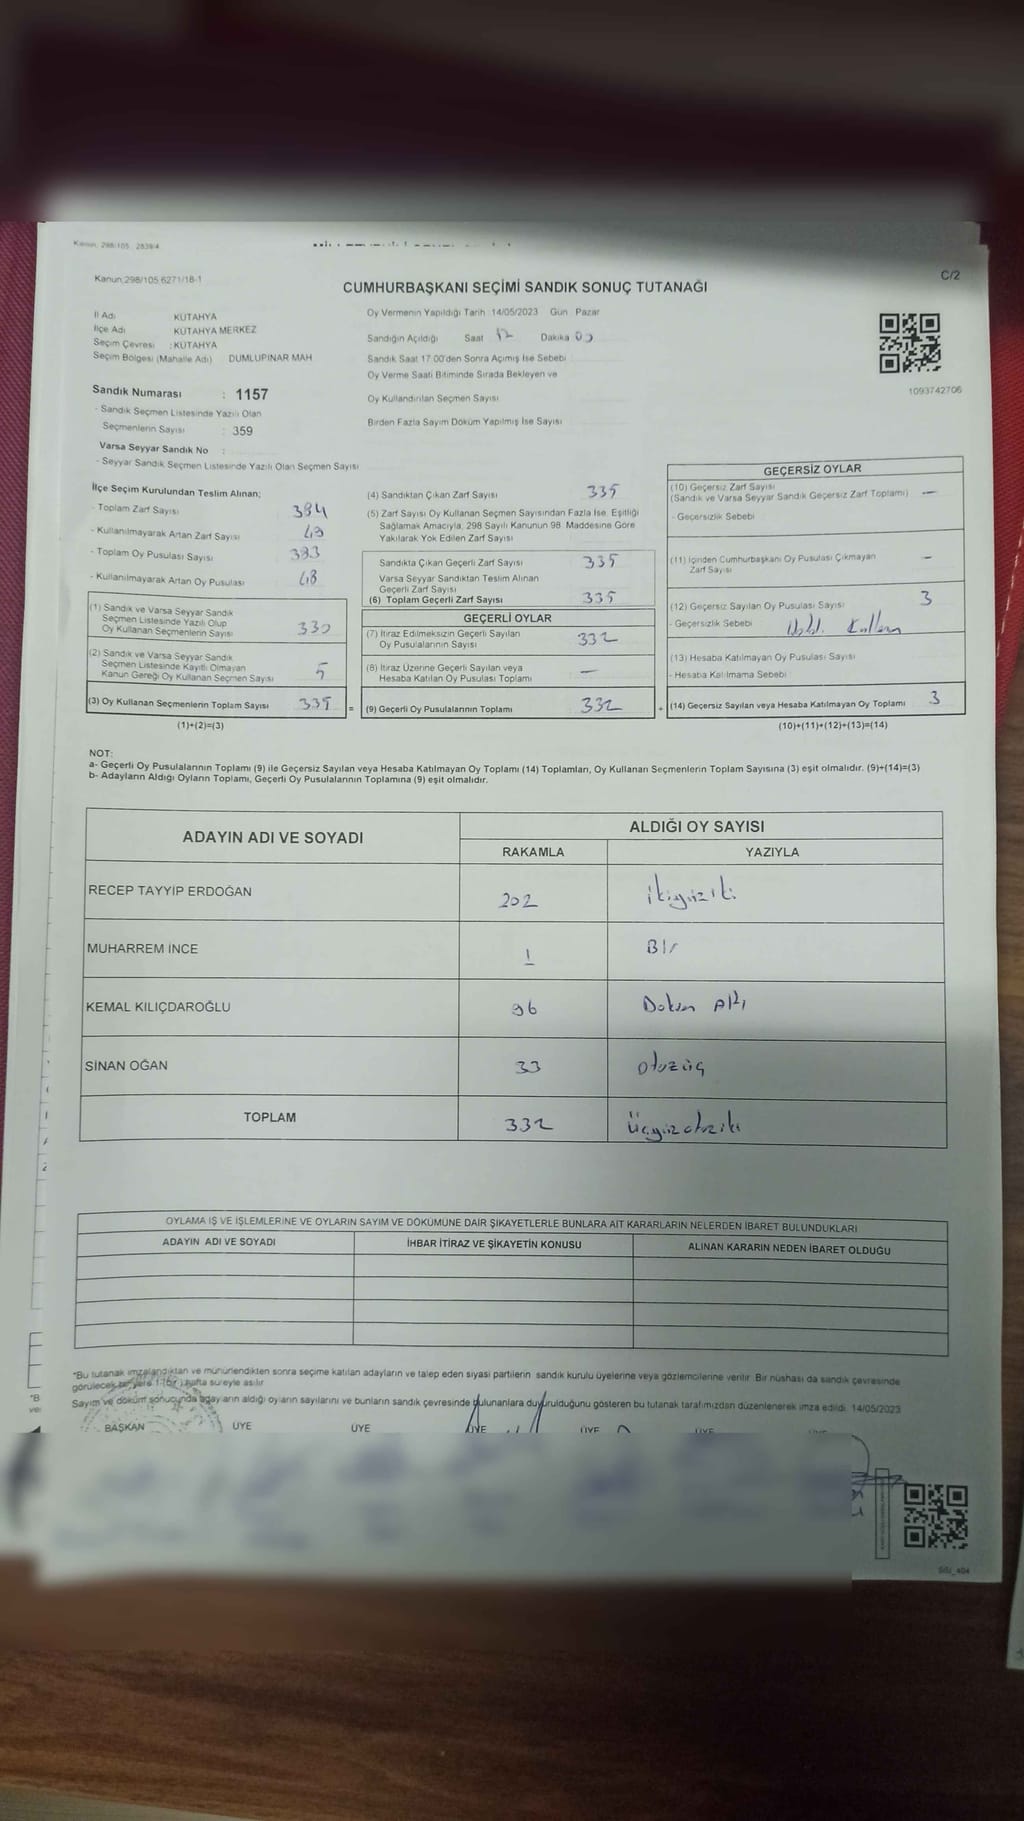 Kanun: 298/105 2839/4
Kanun:298/105 6271/18-1
C/2
CUMHURBAŞKANI SEÇİMİ SANDIK SONUÇ TUTANAĞI
İl Adı KÜTAHYA
İlçe Adı KÜTAHYA MERKEZ
Seçim Çevresi : KÜTAHYA
Seçim Bölgesi (Mahalle Adı) DUMLUPINAR MAH
Sandık Numarası : 1157
- Sandık Seçmen Listesinde Yazılı Olan
Seçmenlerin Sayısı : 359
Varsa Seyyar Sandık No :
- Seyyar Sandık Seçmen Listesinde Yazılı Olan Seçmen Sayısı
Oy Vermenin Yapıldığı Tarih 14/05/2023 Gün Pazar
Sandığın Açıldığı Saat Dakika
Sandık Saat 17:00'den Sonra Açımış İse Sebebi
Oy Verme Saati Bitiminde Sırada Bekleyen ve
Oy Kullandırılan Seçmen Sayısı
Birden Fazla Sayım Döküm Yapılmış İse Sayısı
1093742706
İlçe Seçim Kurulundan Teslim Alınan;
- Toplam Zarf Sayısı 384
- Kullanılmayarak Artan Zarf Sayısı 49
- Toplam Oy Pusulası Sayısı 383
- Kullanılmayarak Artan Oy Pusulası 48
(1) Sandık ve Varsa Seyyar Sandık
Seçmen Listesinde Yazılı Olup
Oy Kullanan Seçmenlerin Sayısı 330
(2) Sandık ve Varsa Seyyar Sandık
Seçmen Listesinde Kayıtlı Olmayan
Kanun Gereği Oy Kullanan Seçmen Sayısı 5
(3) Oy Kullanan Seçmenlerin Toplam Sayısı 335
(1)+(2)=(3)
(4) Sandıktan Çıkan Zarf Sayısı 335
(5) Zarf Sayısı Oy Kullanan Seçmen Sayısından Fazla İse, Eşitliği
Sağlamak Amacıyla, 298 Sayılı Kanunun 98. Maddesine Göre
Yakılarak Yok Edilen Zarf Sayısı
Sandıkta Çıkan Geçerli Zarf Sayısı 335
Varsa Seyyar Sandıktan Teslim Alınan
Geçerli Zarf Sayısı
(6) Toplam Geçerli Zarf Sayısı 335
GEÇERLİ OYLAR
(7) İtiraz Edilmeksizin Geçerli Sayılan
Oy Pusulalarının Sayısı 332
(8) İtiraz Üzerine Geçerli Sayılan veya
Hesaba Katılan Oy Pusulası Toplamı —
= (9) Geçerli Oy Pusulalarının Toplamı 332
GEÇERSİZ OYLAR
(10) Geçersiz Zarf Sayısı
(Sandık ve Varsa Seyyar Sandık Geçersiz Zarf Toplamı) —
- Geçersizlik Sebebi
(11) İçinden Cumhurbaşkanı Oy Pusulası Çıkmayan
Zarf Sayısı —
(12) Geçersiz Sayılan Oy Pusulası Sayısı 3
- Geçersizlik Sebebi
(13) Hesaba Katılmayan Oy Pusulası Sayısı
- Hesaba Katılmama Sebebi
+ (14) Geçersiz Sayılan veya Hesaba Katılmayan Oy Toplamı 3
(10)+(11)+(12)+(13)=(14)
NOT:
a- Geçerli Oy Pusulalarının Toplamı (9) ile Geçersiz Sayılan veya Hesaba Katılmayan Oy Toplamı (14) Toplamları, Oy Kullanan Seçmenlerin Toplam Sayısına (3) eşit olmalıdır. (9)+(14)=(3)
b- Adayların Aldığı Oyların Toplamı, Geçerli Oy Pusulalarının Toplamına (9) eşit olmalıdır.
ADAYIN ADI VE SOYADI ALDIĞI OY SAYISI
RAKAMLA YAZIYLA
RECEP TAYYİP ERDOĞAN 202 ikiyüziki
MUHARREM İNCE 1 Bir
KEMAL KILIÇDAROĞLU 96 Doksan Altı
SİNAN OĞAN 33 otuzüç
TOPLAM 332 Üçyüzotuziki
OYLAMA İŞ VE İŞLEMLERİNE VE OYLARIN SAYIM VE DÖKÜMÜNE DAİR ŞİKAYETLERLE BUNLARA AİT KARARLARIN NELERDEN İBARET BULUNDUKLARI
ADAYIN ADI VE SOYADI İHBAR İTİRAZ VE ŞİKAYETİN KONUSU ALINAN KARARIN NEDEN İBARET OLDUĞU
*Bu tutanak imzalandıktan ve mühürlendikten sonra seçime katılan adayların ve talep eden siyasi partilerin sandık kurulu üyelerine veya gözlemcilerine verilir. Bir nüshası da sandık çevresinde
görülecek bir yere 1 (bir) hafta süreyle asılır
Sayım ve döküm sonucunda adayların aldığı oyların sayılarını ve bunların sandık çevresinde bulunanlara duyurulduğunu gösteren bu tutanak tarafımızdan düzenlenerek imza edildi. 14/05/2023
BAŞKAN ÜYE ÜYE ÜYE ÜYE ÜYE